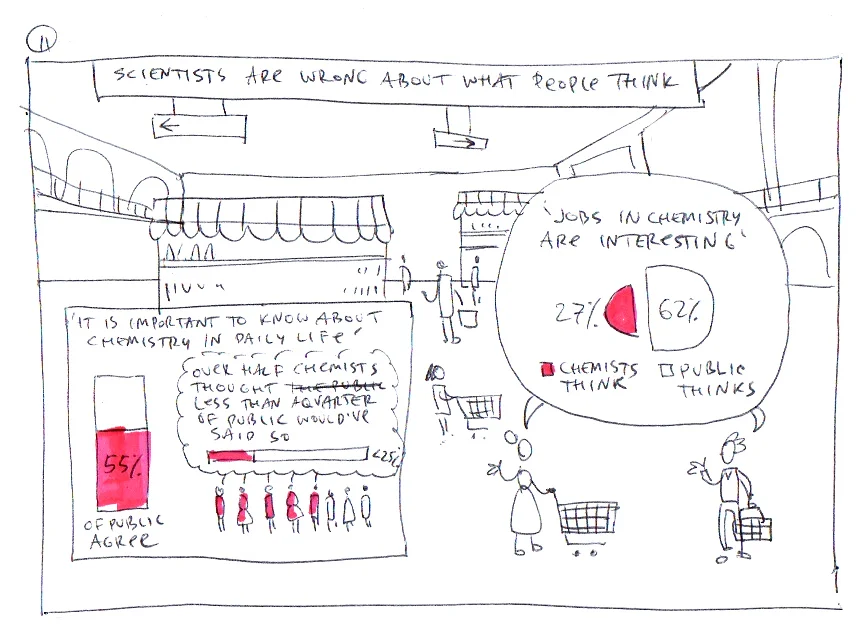 11
SCIENTISTS ARE WRONG ABOUT WHAT PEOPLE THINK
'JOBS IN CHEMISTRY
ARE INTERESTING'
27% 62%
CHEMISTS PUBLIC
THINK THINKS
'IT IS IMPORTANT TO KNOW ABOUT
CHEMISTRY IN DAILY LIFE'
OVER HALF CHEMISTS
THOUGHT THE PUBLIC
LESS THAN A QUARTER
OF PUBLIC WOULD'VE
SAID SO
<25%
55%
OF PUBLIC
AGREE